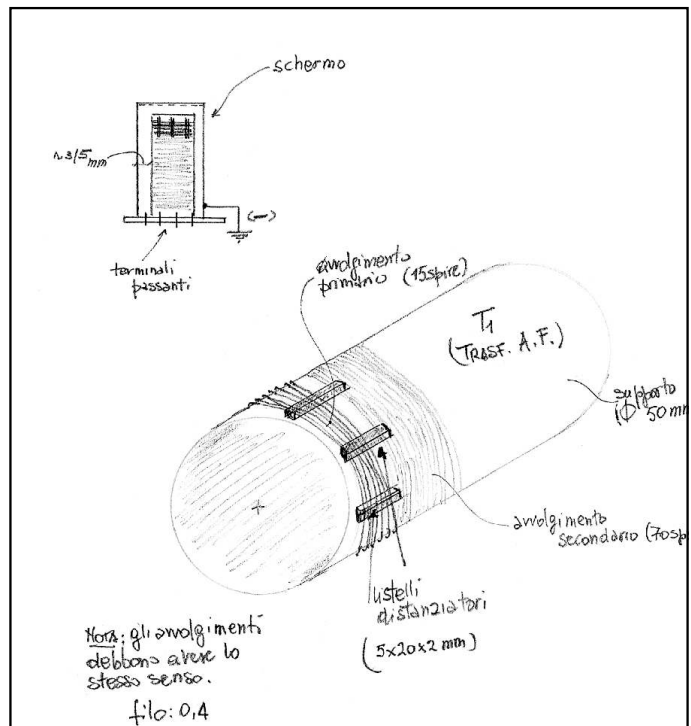 schermo
~ 3/5 mm
(-)
terminali
passanti
avvolgimento
primario (15 spire)
T1
(TRASF. A.F.)
supporto
(Φ 50 mm
avvolgimento
secondario (70 sp
listelli
distanziatori
(5x20x2 mm)
NOTA: gli avvolgimenti
debbono avere lo
stesso senso.
filo: 0,4